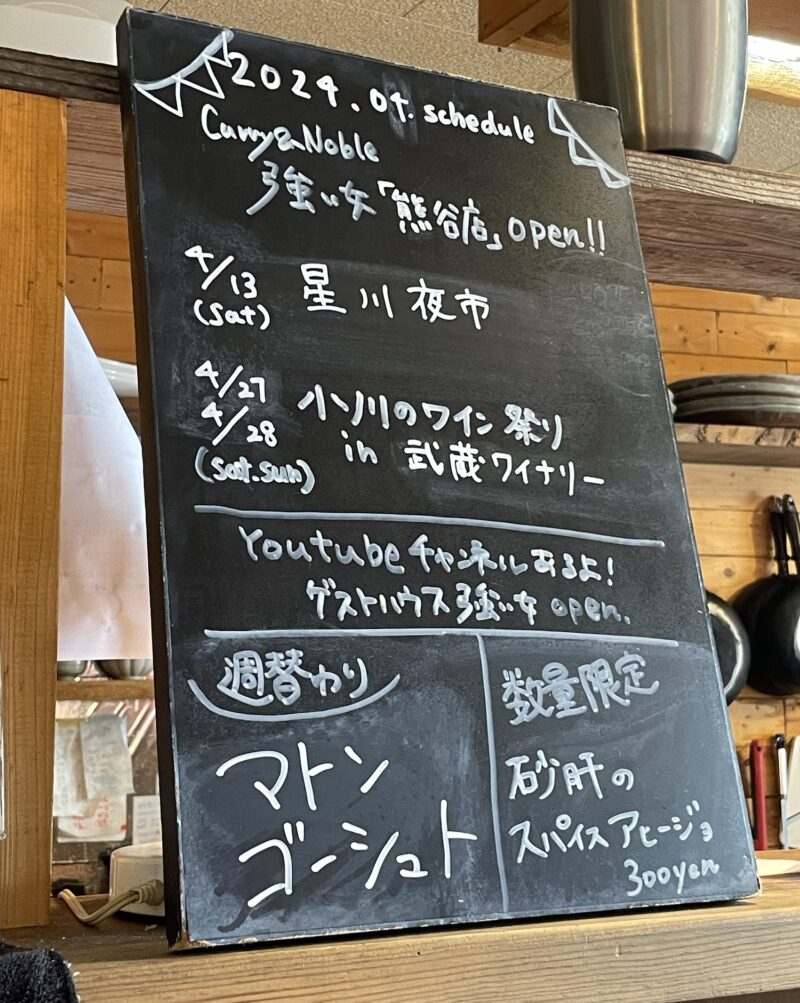 2024.04. schedule
Curry&Noble
強い女「熊谷店」open!!
4/13
(sat)
星川夜市
4/27
4/28
(sat.sun)
小川のワイン祭り
in 武蔵ワイナリー
Youtubeチャンネルあるよ!
ゲストハウス強い女 open.
週替わり
マトン
ゴーシュト
数量限定
砂肝の
スパイスアヒージョ
300yen